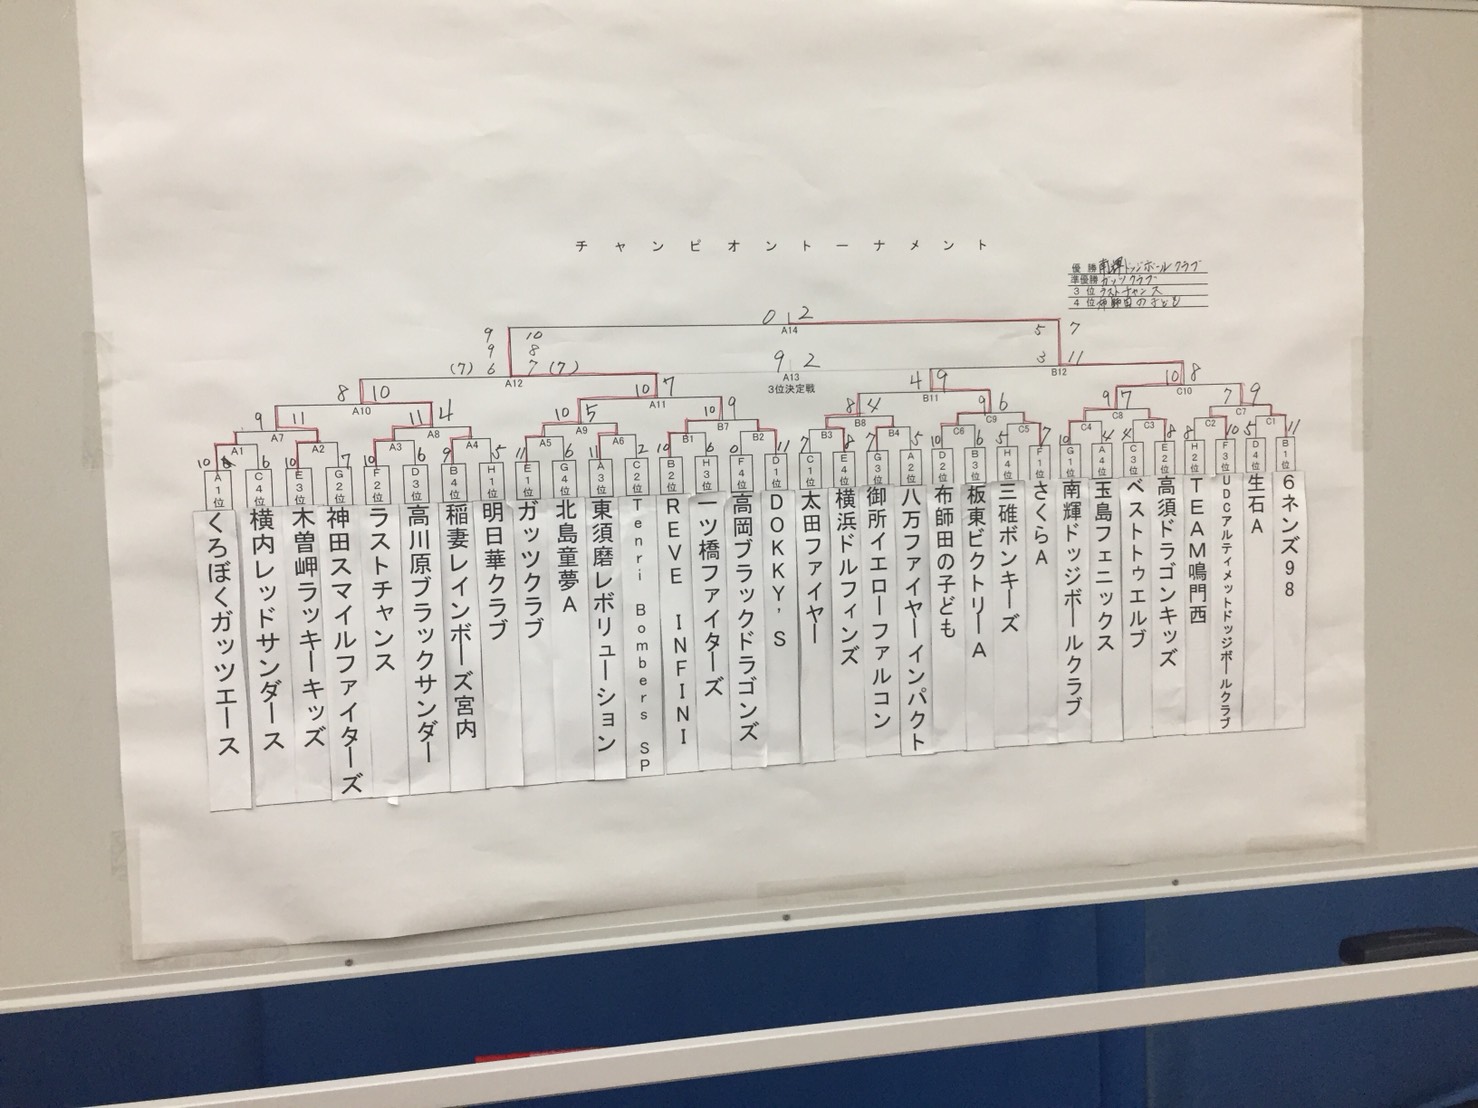 チャンピオントーナメント
優勝 南輝ドッジボールクラブ
準優勝 ガッツクラブ
3位 ラストチャンス
4位 布師田の子ども
0 2
A14
9 10
9 8
(7) 6 7 (7)
A12
5 7
3 11
B12
9 2
A13
3位決定戦
8 10
A10
10 7
A11
4 9
B11
10 8
C10
9 11
A7
11 4
A8
10 5
A9
10 9
B7
8 4
B8
9 6
C9
9 7
C8
7 9
C7
A1 A2 A3 A4 A5 A6 B1 B2 B3 B4 C6 C5 C4 C3 C2 C1
10 6 10 7 10 6 9 5 11 6 11 2 10 6 0 11 7 8 7 5 10 6 5 7 10 4 4 8 8 10 5 11
A1位 くろぼくガッツエース
C4位 横内レッドサンダース
E3位 木曽岬ラッキーキッズ
G2位 神田スマイルファイターズ
F2位 ラストチャンス
D3位 高川原ブラックサンダー
B4位 稲妻レインボーズ宮内
H1位 明日華クラブ
E1位 ガッツクラブ
G4位 北島童夢A
A3位 東須磨レボリューション
C2位 Tenri Bombers SP
B2位 REVE INFINI
H3位 一ツ橋ファイターズ
F4位 高岡ブラックドラゴンズ
D1位 DOKKY'S
C1位 太田ファイヤー
E4位 横浜ドルフィンズ
G3位 御所イエローファルコン
A2位 八万ファイヤーインパクト
D2位 布師田の子ども
B3位 板東ビクトリーA
H4位 三碓ボンキーズ
F1位 さくらA
G1位 南輝ドッジボールクラブ
A4位 玉島フェニックス
C3位 ベストトゥエルブ
E2位 高須ドラゴンキッズ
H2位 TEAM鳴門西
F3位 UDCアルティメットドッジボールクラブ
D4位 生石A
B1位 6ネンズ98